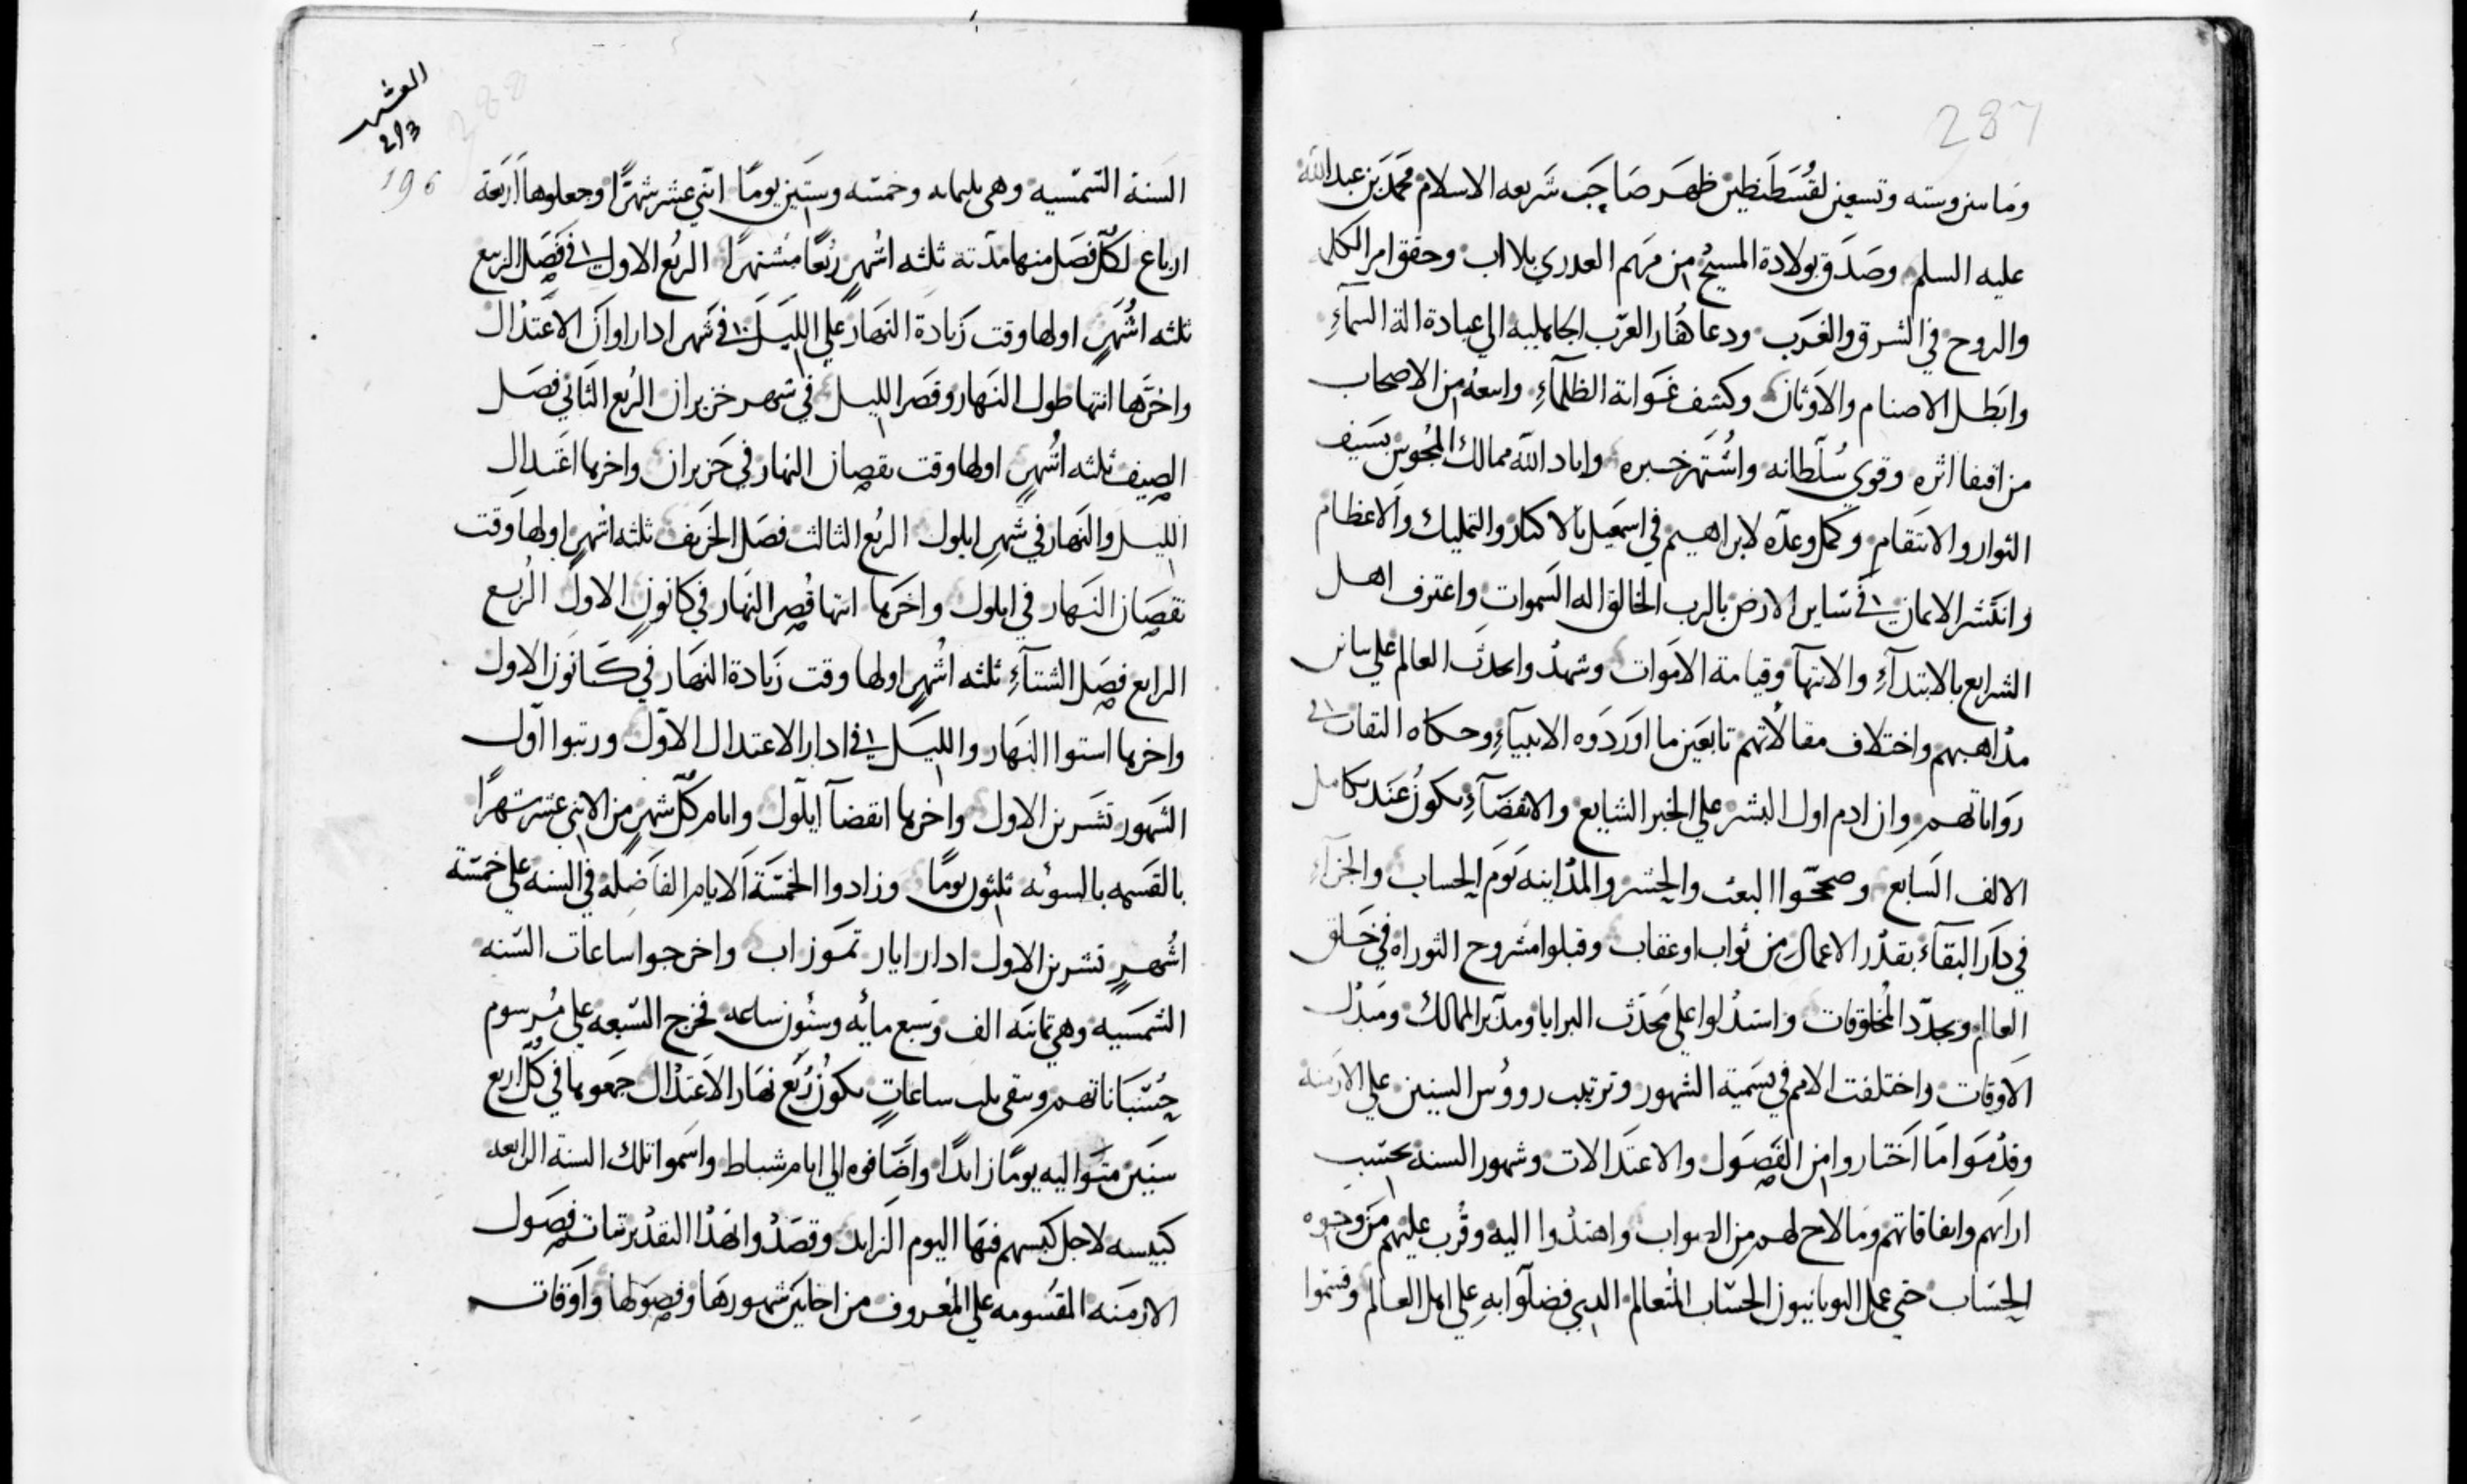 287
وماىىن وسته وتسعين لقسطنطين ظهر صاحب شريعه الاسلام محمد بن عبد الله
عليه السلم وصدق بولادة المسيح من مريم العدري بلا اب وحقق امر الكلمه
والروح في الشرق والغرب ودعا كفار العرب الجاهليه الي عبادة الة السمآءِ
وابطل الاصنام والاوثان وكشف غواية الظلمآءِ واسعه من الاصحاب
من اقتفا اثره وقوي سلطانه واشتهر خبره واباد الله ممالك المجوس بسيف
البوار والانتقام وكمل وعده لابراهيم في اسمعيل بالاكثار والتمليك والاعظام
وانتشر الايمان في ساير الارض بالرب الخالق اله السموات واعترف اهل
الشرايع بالابتدآءِ والانتهآ وقيامة الاموات وشهدوا بحدث العالم علي تباين
مذاهبهم واختلاف مقالاتهم تابعين ما اوردوه الانبيآءِ وحكاه الثقات في
رواياتهم وان ادم اول البشر علي الخبر الشايع والانقضآءِ يكون عند تكامل
الالف السابع وصححوا البعث والحشر والمداينه يوم الحساب والجزآءِ
في دار البقآء بقدر الاعمال من ثواب او عقاب وقبلوا مشروح التوراه في خلق
العالم وتجدد المخلوقات واستدلوا علي محدث البرايا ومدبر الممالك ومبدل
الاوقات واختلفت الامم في تسمية الشهور وترتيب رووس السنين علي الازمنه
وقدموا ما اختاروا من الفصول والاعتدالات وشهور السنه بحسب
ارايهم واتفاقاتهم وما لاح لهم من الصواب واهتدوا اليه وقرب عليهم من وجوه
الحساب حتي عمل اليونانيون الحساب المتعالم الدي فضلوا به علي اهل العالم وقسموا
288
العشر
293
196
السنة الشمسيه وهي ثلثمايه وخمسه وستين يومًا اثني عشر شهرًا وجعلوها اربعة
ارباع لكل فصل منها مدته ثلثه اشهر ربعًا مشتهرًا الربع الاول في فصل الربيع
ثلثه اشهر اولها وقت زيادة النهار علي الليل في شهر ادار اوان الاعتدال
واخرها انتها طول النهار وقصر الليل في شهر حزيران الربع الثاني فصل
الصيف ثلثه اشهر اولها وقت نقصان النهار في حزيران واخرها اعتدال
الليل والنهار في شهر ايلول الربع الثالث فصل الخريف ثلثه اشهر اولها وقت
نقصان النهار في ايلول واخرها انتها قصر النهار في كانون الاول الربع
الرابع فصل الشتآءِ ثلثه اشهر اولها وقت زيادة النهار في كانون الاول
واخرها استوا النهار والليل في ادار الاعتدال الاول ورتبوا اول
الشهور تشرين الاول واخرها انقضآ ايلول وايام كل شهر من الاثني عشر شهرًا
بالقسمه بالسويه ثلثون يومًا وزادوا الخمسة الايام الفاضله في السنه علي خمسة
اشهر تشرين الاول ادار ايار تموز اب واخرجوا ساعات السنه
الشمسيه وهي ثمانيه الف وسبع مايه وستون ساعه فخرج السبعه علي مرسوم
حسباناتهم وتبقي ثلث ساعات يكون ربع نهار الاعتدال جمعوها في كل اربع
سنين متواليه يومًا زايدًا واضافوه الي ايام شباط واسموا تلك السنة الرابعه
كبيسه لاجل كبسهم فيها اليوم الزايد وقصدوا بهذا التقدير ثبات فصول
الازمنه المقسومه علي المعروف من احايين شهورها وفصولها واوقات